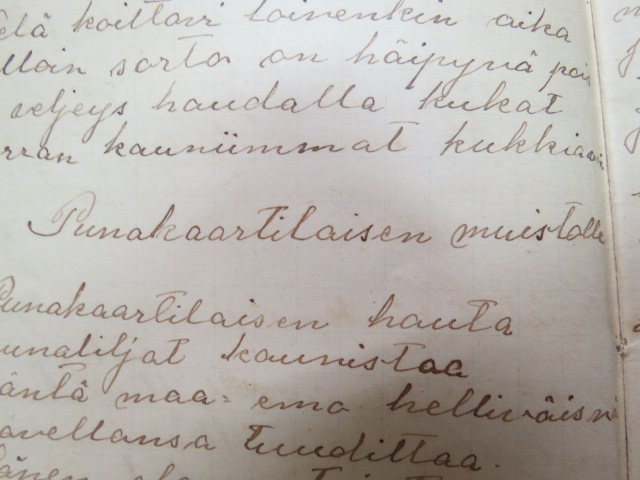 koittavi toinenkin aika
sorto on häipyvä pois
veljeys haudalla kukat
kerran kauniimmat kukkia vois
Punakaartilaisen muistolle
Punakaartilaisen hauta
punaliljat kaunistaa
häntä maa-emo helliväisn
povellansa tuudittaa.